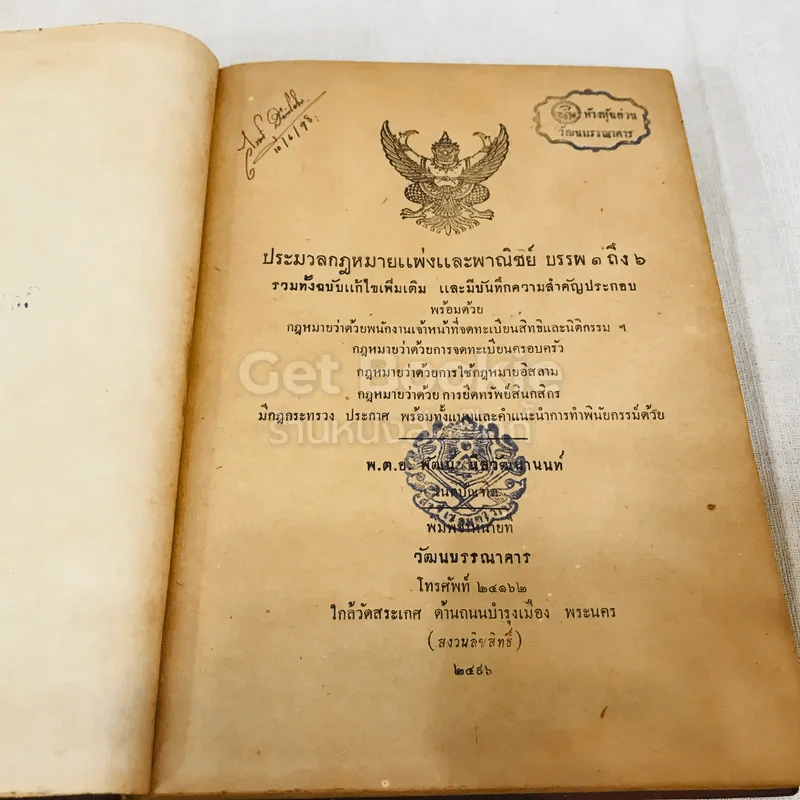 ๑๐/๖/๙๘
ห้างหุ้นส่วน
วัฒนบรรณาคาร
ประมวลกฎหมายแพ่งและพาณิชย์ บรรพ ๑ ถึง ๖
รวมทั้งฉบับแก้ไขเพิ่มเติม และมีบันทึกความสำคัญประกอบ
พร้อมด้วย
กฎหมายว่าด้วยพนักงานเจ้าหน้าที่จดทะเบียนสิทธิและนิติกรรม ฯ
กฎหมายว่าด้วยการจดทะเบียนครอบครัว
กฎหมายว่าด้วยการใช้กฎหมายอิสลาม
กฎหมายว่าด้วย การยึดทรัพย์สินกสิกร
Get Bookie
มีกฎกระทรวง ประกาศ พร้อมทั้งแบบและคำแนะนำการทำพินัยกรรม์ด้วย
ร้านหนังสือ
พ.ต.อ. พัฒน์ นีลวัฒนานนท์
พิมพ์จำหน่ายที่
วัฒนบรรณาคาร
โทรศัพท์ ๒๔๑๖๒
ใกล้วัดสระเกศ ด้านถนนบำรุงเมือง พระนคร
(สงวนลิขสิทธิ์)
๒๔๙๖